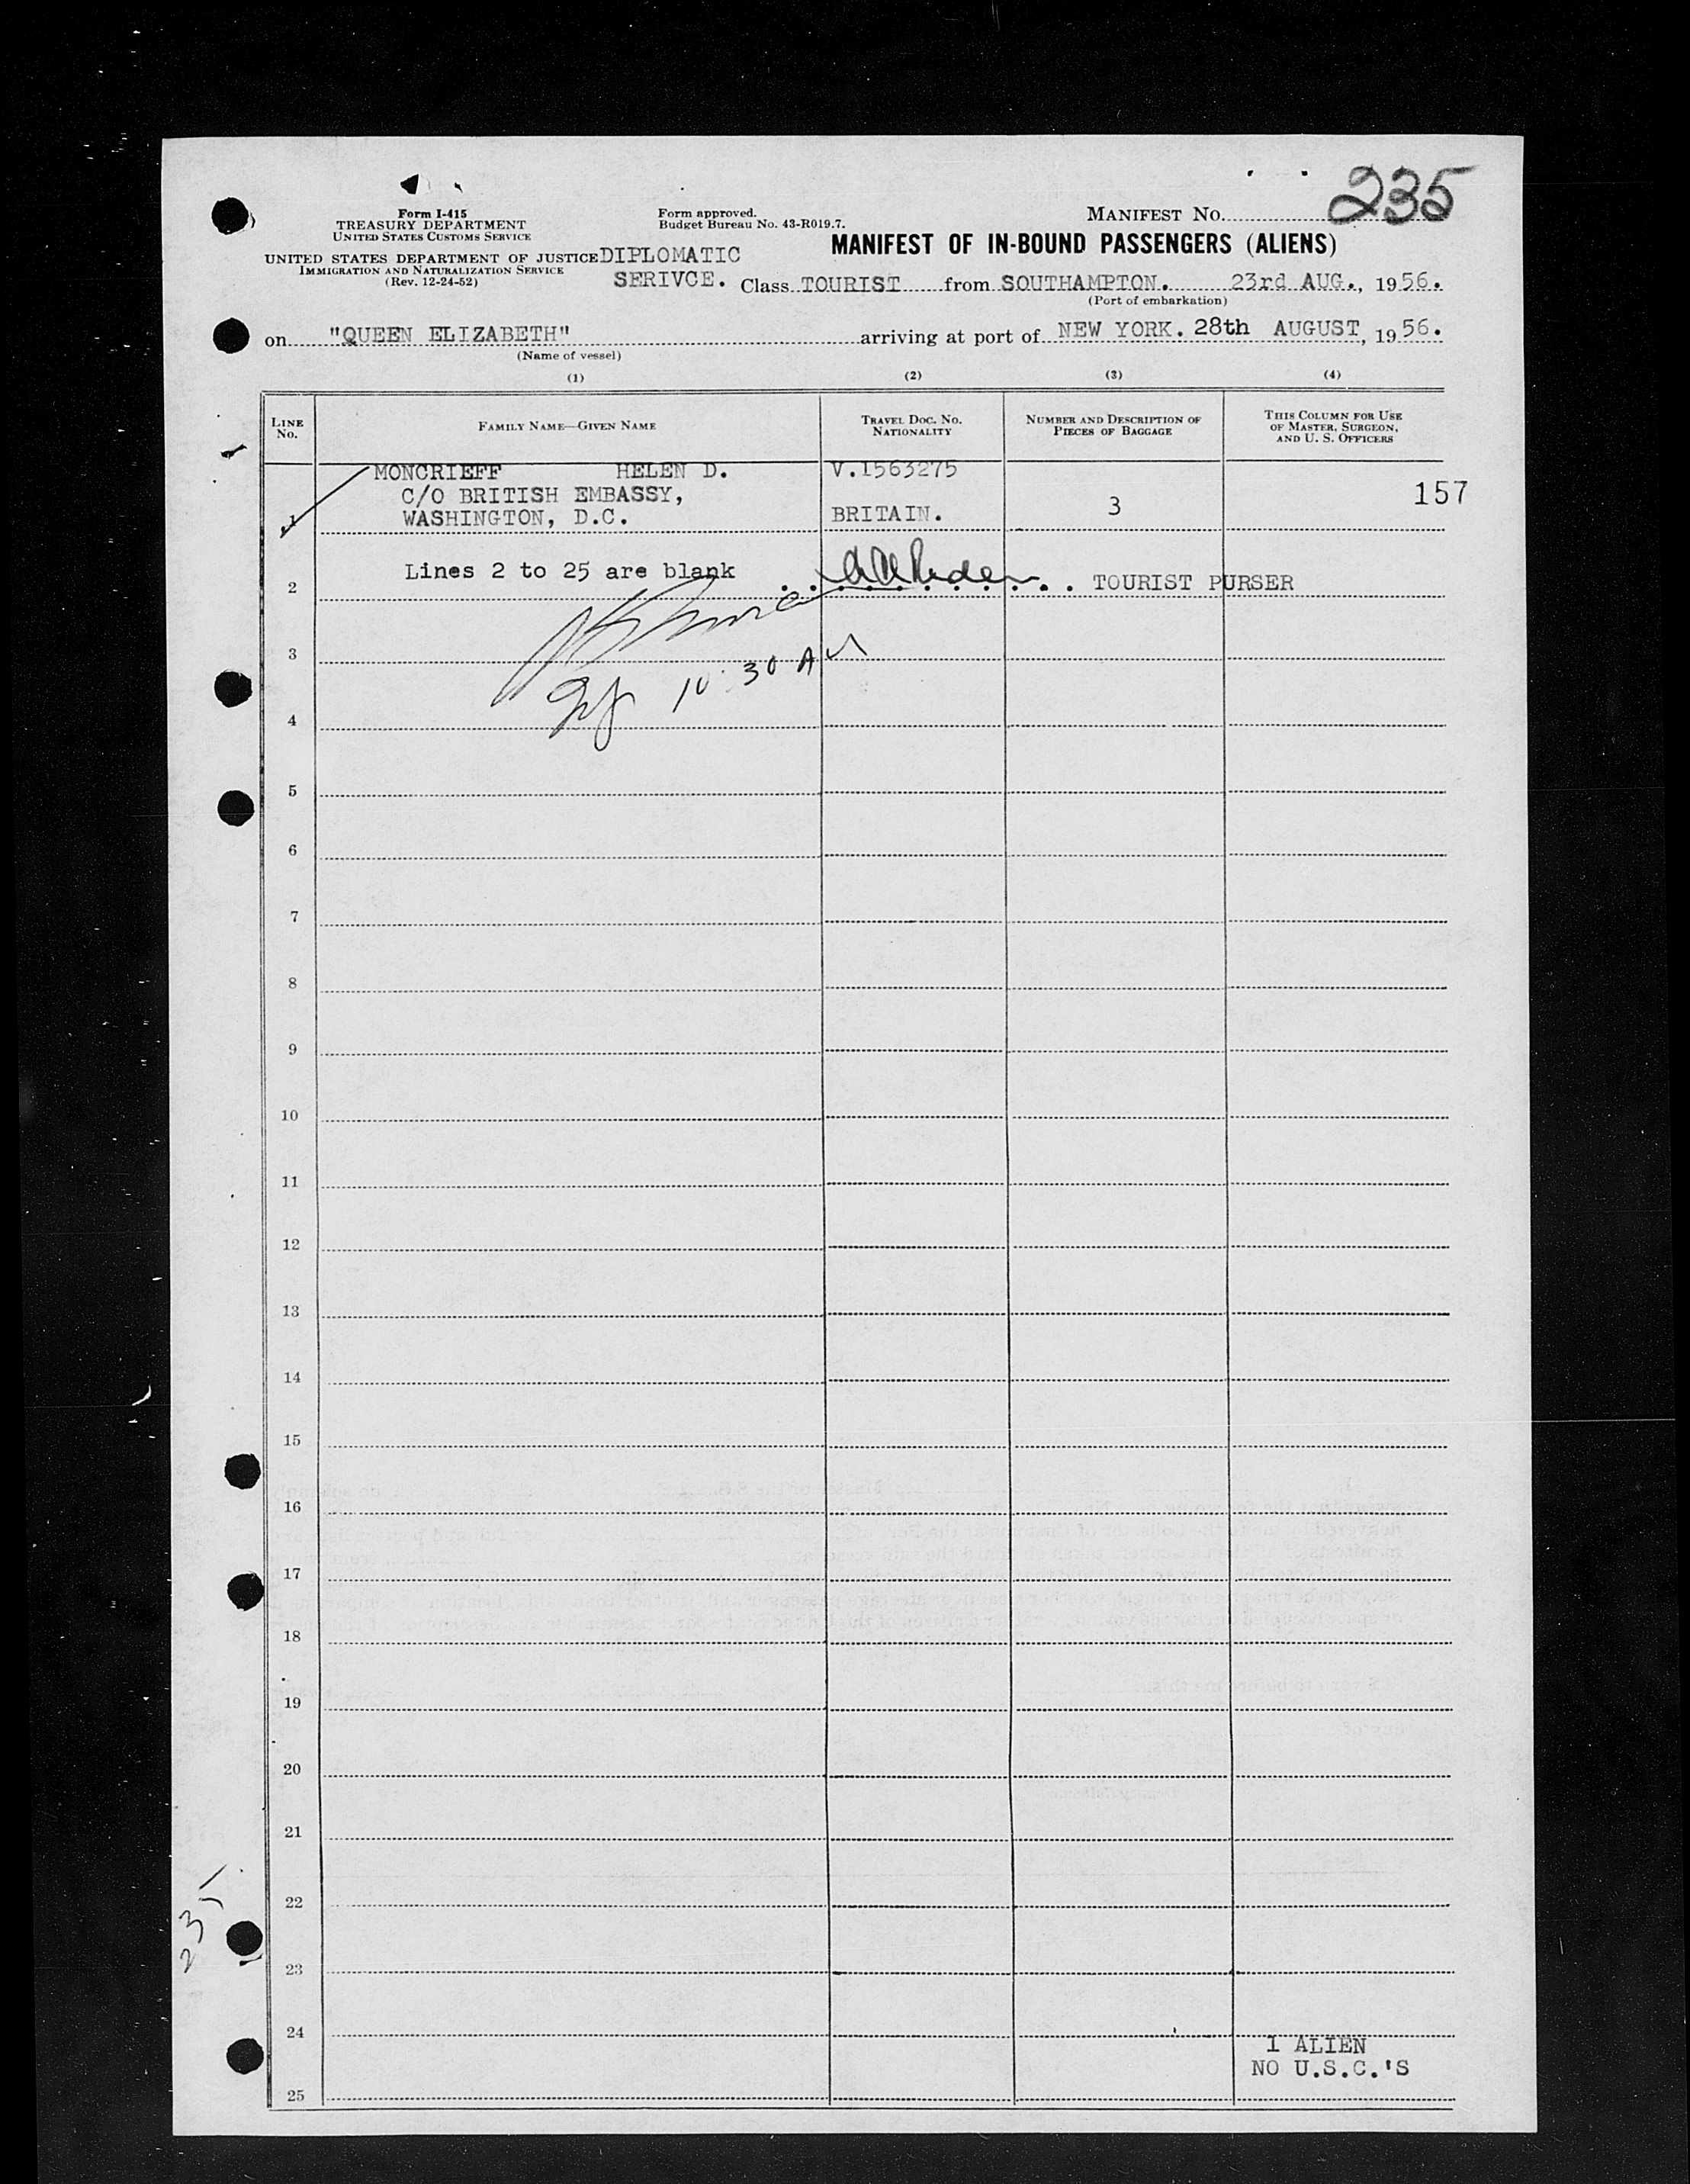 MANIFEST NO. 235
Form I-415
TREASURY DEPARTMENT
UNITED STATES CUSTOMS SERVICE
UNITED STATES DEPARTMENT OF JUSTICE
IMMIGRATION AND NATURALIZATION SERVICE
(Rev. 12-24-52)
Form approved.
Budget Bureau No. 43-R019.7.
MANIFEST OF IN-BOUND PASSENGERS (ALIENS)
DIPLOMATIC
SERIVCE. Class TOURIST from SOUTHAMPTON. 23rd AUG., 1956.
(Port of embarkation)
on "QUEEN ELIZABETH" arriving at port of NEW YORK. 28th AUGUST, 1956.
(Name of vessel)
(1) (2) (3) (4)
LINE No. FAMILY NAME—GIVEN NAME TRAVEL DOC. NO. NATIONALITY NUMBER AND DESCRIPTION OF PIECES OF BAGGAGE THIS COLUMN FOR USE OF MASTER, SURGEON, AND U. S. OFFICERS
MONCRIEFF HELEN D. V.1563275
C/O BRITISH EMBASSY, 3 157
1 WASHINGTON, D.C. BRITAIN.
Lines 2 to 25 are blank
2 TOURIST PURSER
3
10:30 AM
4
5
6
7
8
9
10
11
12
13
14
15
16
17
18
19
20
21
22
235
23
24
1 ALIEN
NO U.S.C.'S
25